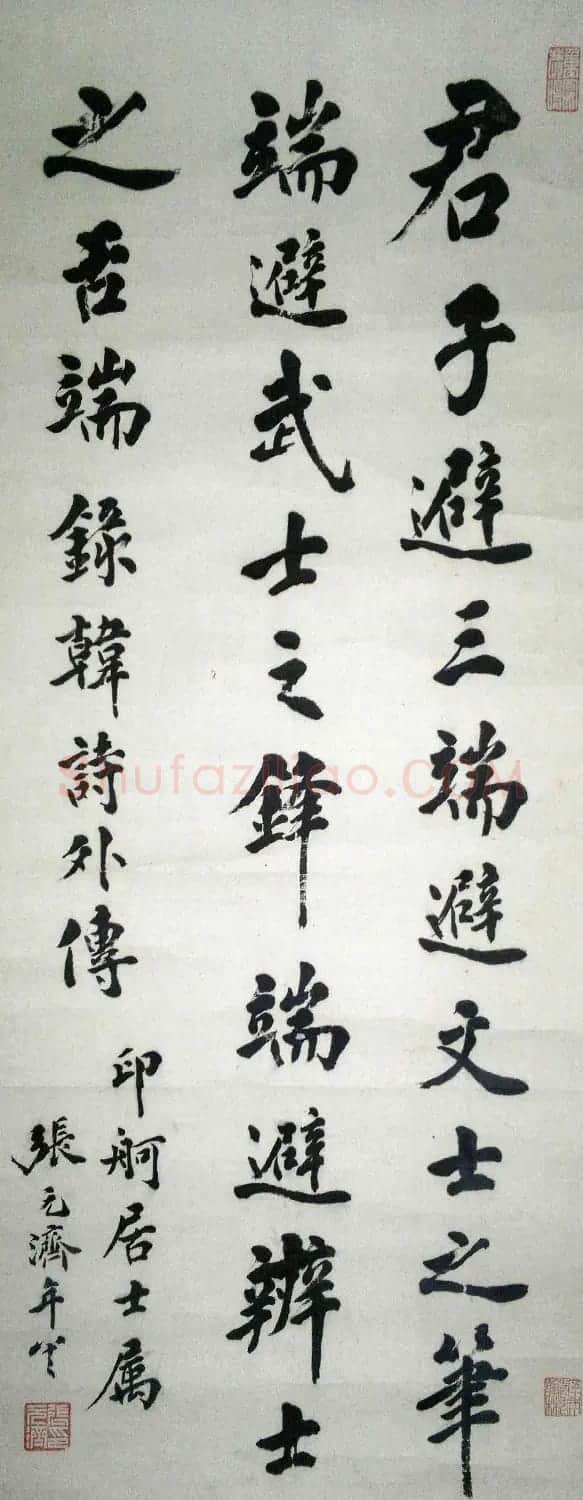 君子避三端避文士之筆
端避武士之鋒端避辨士
之舌端錄韓詩外傳
印舸居士属
張元濟年
Shufaziliao.COM